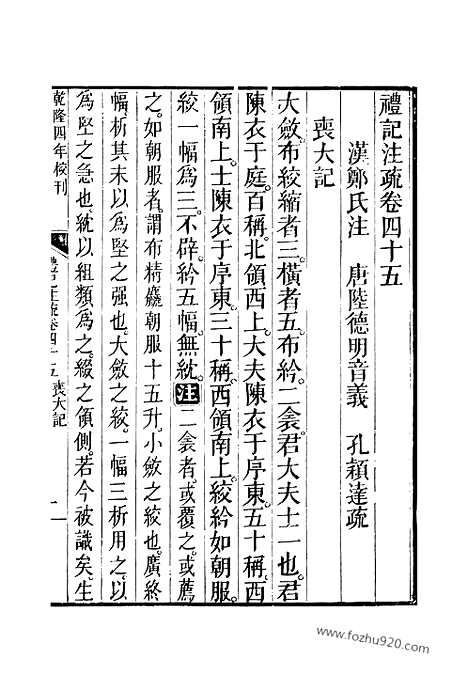 禮記注疏卷四十五
漢鄭氏注 唐陸德明音義 孔穎達疏
喪大記
大斂布絞縮者三橫者五布紟二衾君大夫士一也君
陳衣于庭百稱北領西上大夫陳衣于序東五十稱西
領南上士陳衣于序東三十稱西領南上絞紟如朝服
絞一幅爲三不辟紟五幅無紞注二衾者或覆之或薦
之如朝服者謂布精麤朝服十五升小斂之絞也廣終
幅析其末以爲堅之强也大斂之絞一幅三析用之以
爲堅之急也紞以組類爲之綴之領側若今被識矣生
乾隆四年校刊
禮記注疏卷四十五 喪大記
一
www.fozhu920.com